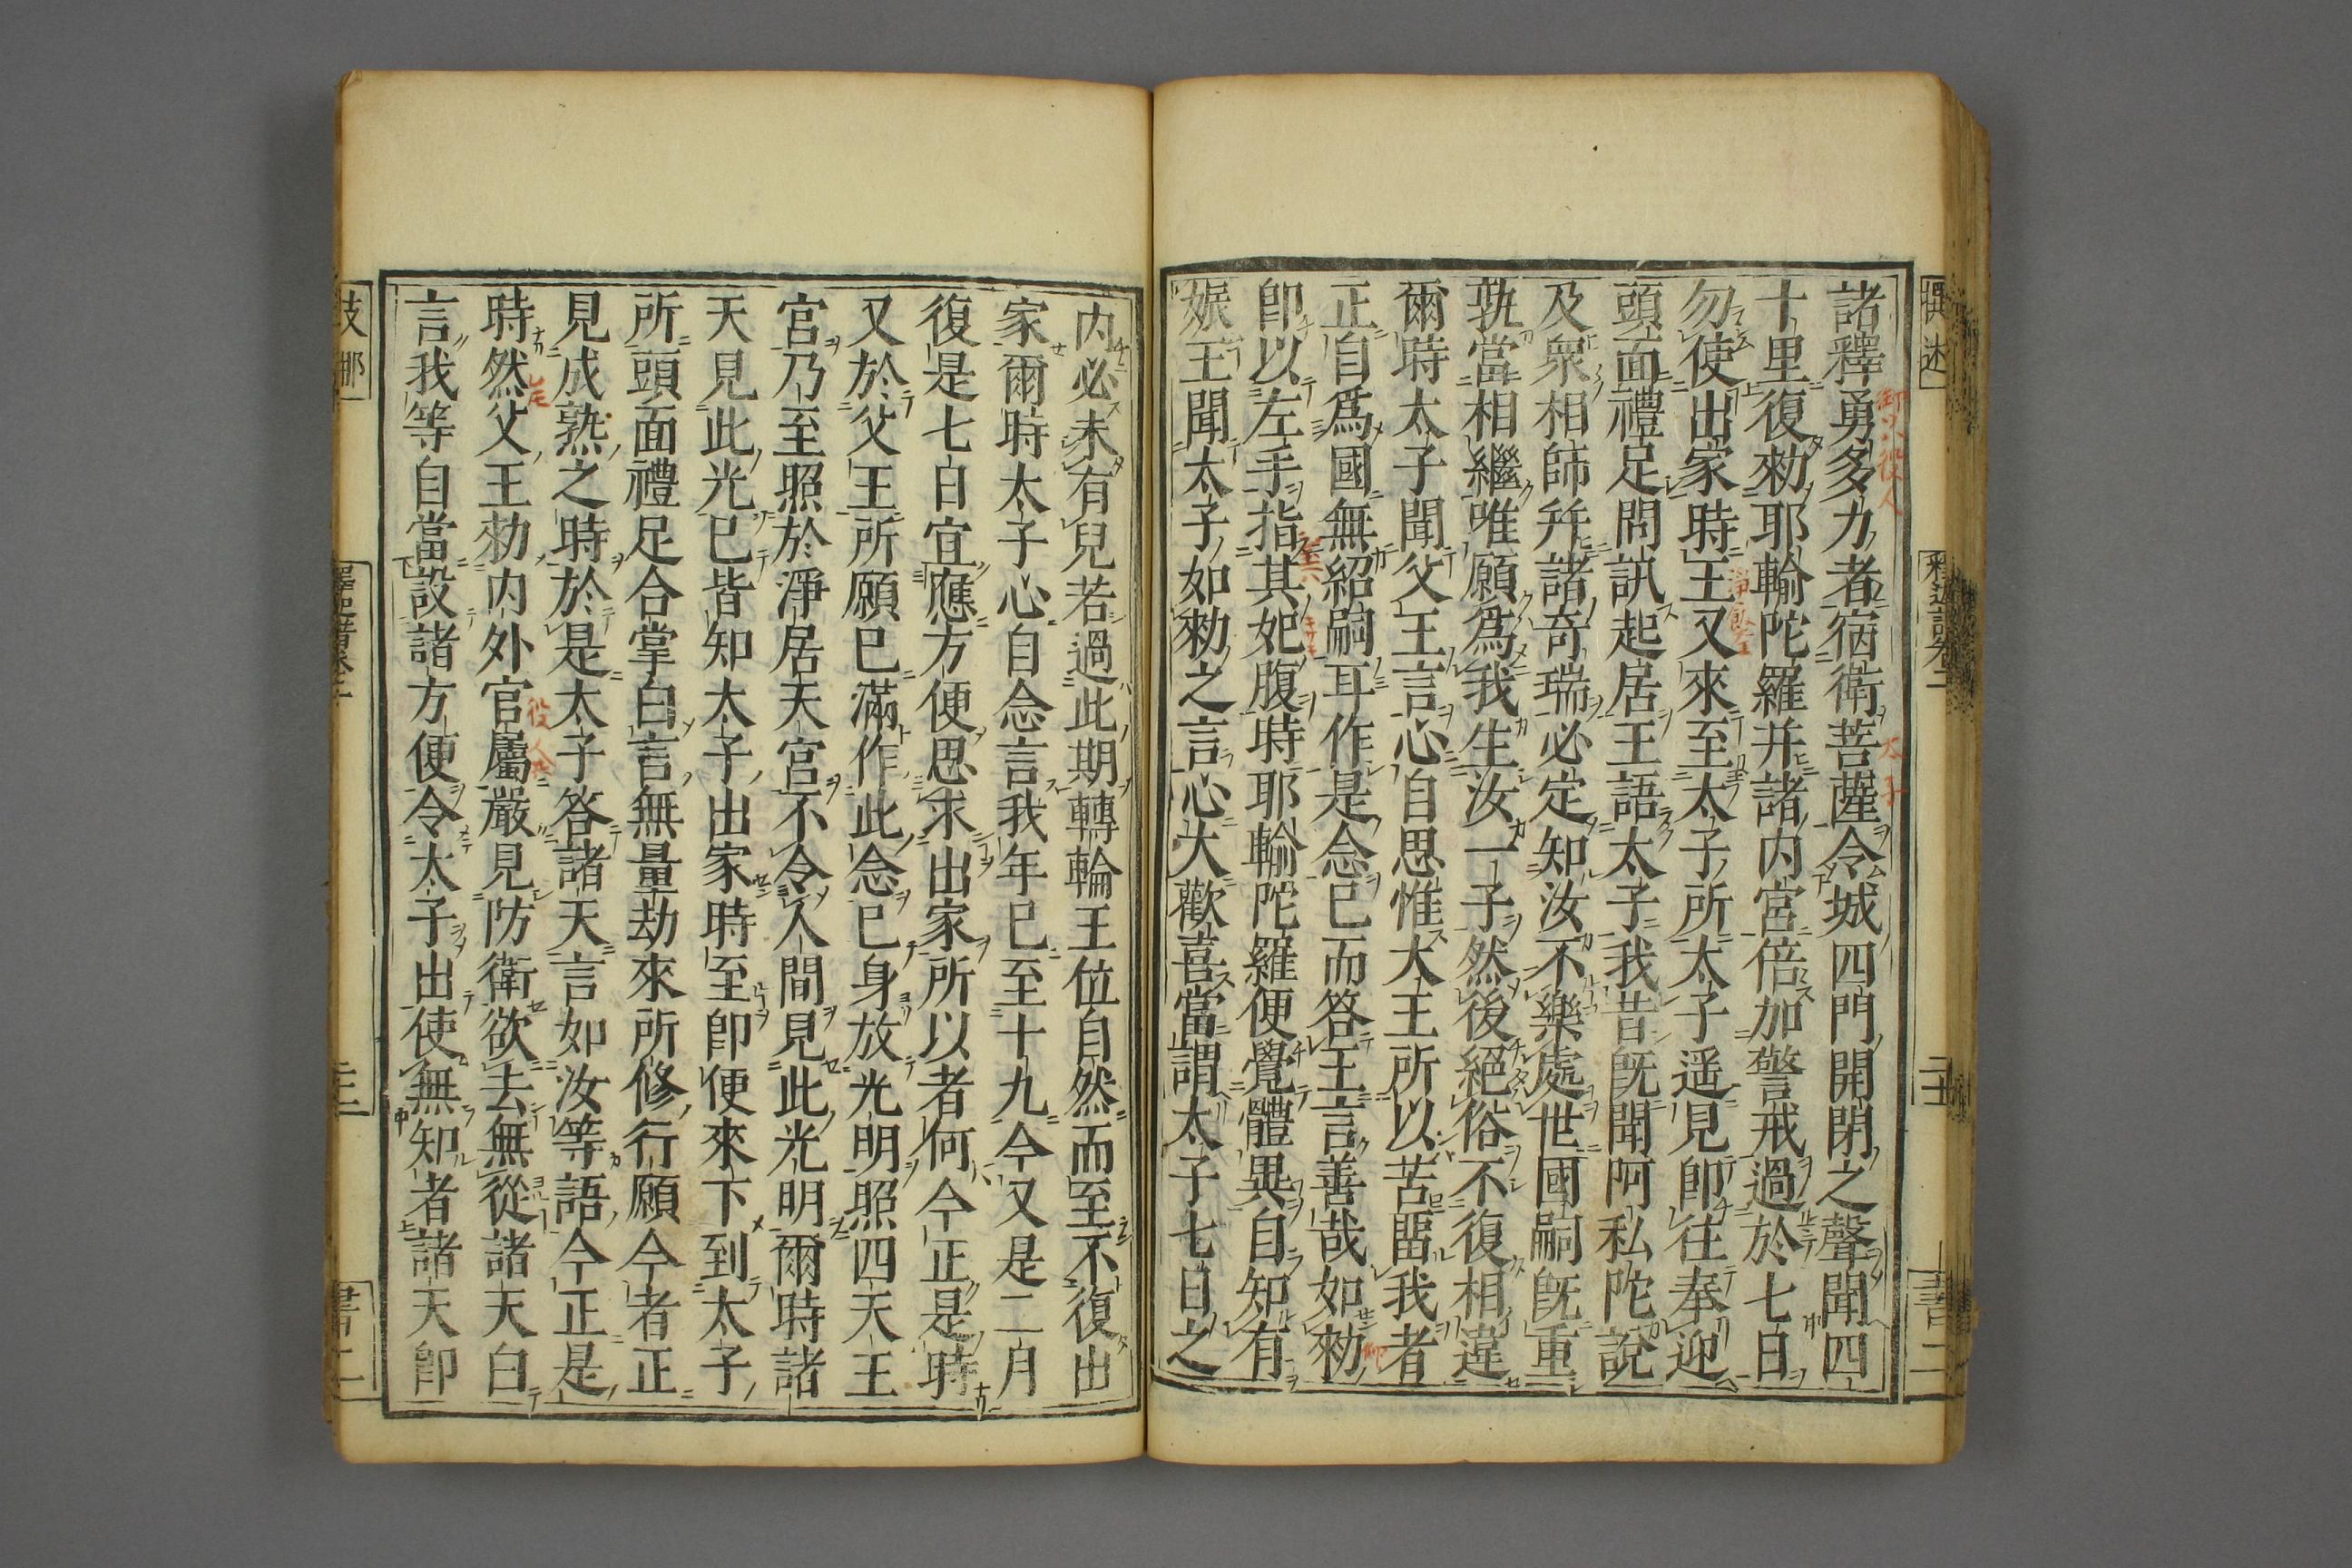 諸釋勇多力者宿衛菩薩令城四門開閉之聲聞四
十里復勑耶輸陀羅并諸内宮倍加警戒過於七日
勿使出家時王又來至太子所太子遥見即往奉迎
頭面禮足問訊起居王語太子我昔既聞阿私陀說
及衆相師并諸奇瑞必定知汝不樂處世國嗣既重
孰當相繼唯願爲我生汝一子然後絕俗不復相違
爾時太子聞父王言心自思惟大王所以苦畱我者
正自爲國無紹嗣耳作是念已而答王言善哉如勑
即以左手指其妃腹時耶輸陀羅便覺體異自知有
娠王聞太子如勑之言心大歡喜當謂太子七日之
内必未有兒若過此期轉輪王位自然而至不復出
家爾時太子心自念言我年已至十九今又是二月
復是七日宜應方便思求出家所以者何今正是時
又於父王所願已滿作此念已身放光明照四天王
宮乃至照於淨居天宮不令人間見此光明爾時諸
天見此光已皆知太子出家時至即便來下到太子
所頭面禮足合掌白言無量劫來所修行願今者正
見成熟之時於是太子答諸天言如汝等語今正是
時然父王勑内外官屬嚴見防衛欲去無從諸天白
言我等自當設諸方便令太子出使無知者諸天即